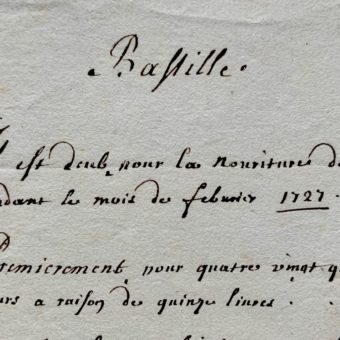 Bastille.
est deub pour la nouriture d
dant le mois de feburier 1727.
Premierement pour quatre vingt q
urs a raison de quinze livres..